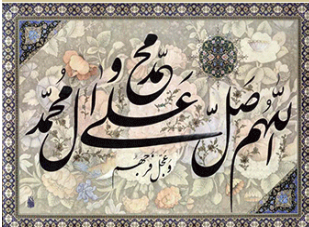 اللّهُمَّ صَلِّ عَلی مُحَمَّد وَ آلِ مُحَمَّد
و عجّل فرجهم